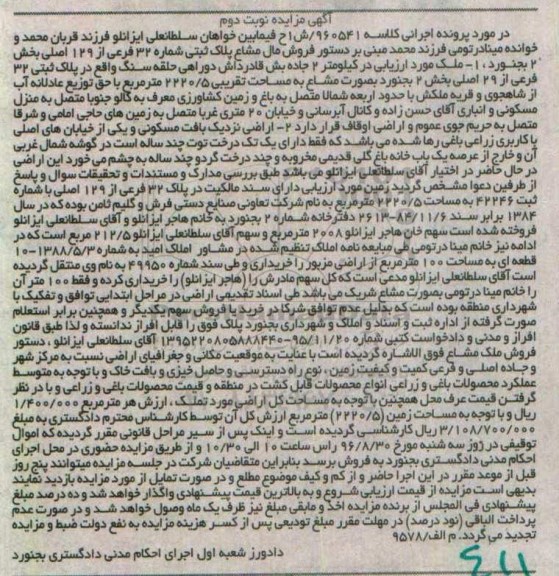 آگهی مزایده نوبت دوم
در مورد پرونده اجرائی کلاسه ۹۶۰۵۴۱/ش۱ح فیمابین خواهان سلطانعلی ایزانلو فرزند قربان محمد و
خوانده مینا درتومی فرزند محمد مبنی بر دستور فروش مال مشاع پلاک ثبتی شماره ۳۲ فرعی از ۱۲۹ اصلی بخش
۲ بجنورد، ۱- ملک مورد ارزیابی در کیلومتر ۲ جاده بش قارداش دوراهی حلقه سنگ واقع در پلاک ثبتی ۳۲
فرعی از ۲۹ اصلی بخش ۲ بجنورد بصورت مشاع به مساحت تقریبی ۲۲۲۰/۵ مترمربع با حق توزیع عادلانه آب
از شاهجوی و قریه ملکش با حدود اربعه شمالا متصل به باغ و زمین کشاورزی معرف به گالو جنوبا متصل به منزل
مسکونی و انباری آقای حسن زاده و کانال آبرسانی و خیابان ۲۰ متری غربا متصل به زمین های حاجی امامی و شرقا
متصل به حریم جوی عموم و اراضی اوقاف قرار دارد ۲- اراضی نزدیک بافت مسکونی و یکی از خیابان های اصلی
با کاربری زراعی باغی رها شده می باشد که فقط دارای یک تک درخت توت چند ساله است در گوشه شمال غربی
آن و خارج از عرصه یک باب خانه باغ گلی قدیمی مخروبه و چند درخت گردو چند ساله به چشم می خورد این اراضی
در حال حاضر در اختیار آقای سلطانعلی ایزانلو می باشد طبق بررسی مدارک و مستندات و تحقیقات سوال و پاسخ
از طرفین دعوا مشخص گردید زمین مورد ارزیابی دارای سند مالکیت در پلاک ۳۲ فرعی از ۱۲۹ اصلی با شماره
ثبت ۴۲۲۴۶ به مساحت ۲۲۲۰/۵ مترمربع به نام شرکت تعاونی صنایع دستی فرش و گلیم ثامن بوده که در سال
۱۳۸۴ برابر سند ۸۴/۱۱/۶-۲۶۱۳ دفترخانه شماره ۲ بجنورد به خانم هاجر ایزانلو و آقای سلطانعلی ایزانلو
فروخته شده است سهم خان هاجر ایزانلو ۲۰۰۸ مترمربع و سهم آقای سلطانعلی ۲۱۲/۵ مربع است که در
ادامه نیز خانم مینا درتومی طی مبایعه نامه املاک تنظیم شده در مشاور املاک امید به شماره ۱۳۸۸/۵/۳-۱۰
قطعه ای به مساحت ۱۰۰ مترمربع از اراضی مزبور را خریداری و طی سند شماره ۴۹۹۵۰ به نام وی منتقل گردیده
است آقای سلطانعلی ایزانلو مدعی است که کل سهم مادرش را (هاجر ایزانلو) را خریداری کرده و فقط ۱۰۰ متر آن
را خانم مینا درتومی بصورت مشاع شریک می باشد طی اسناد تقدیمی اراضی در مراحل ابتدایی توافق و تفکیک با
شهرداری منطقه بوده است که بدلیل عدم توافق شرکا در خرید یا فروش سهم یکدیگر و همچنین برابر استعلام
صورت گرفته از اداره ثبت و اسناد و املاک و شهرداری بجنورد پلاک فوق را قابل افراز ندانسته و لذا طبق قانون
افراز و مدنی و دادخواست کتبی شماره ۹۵/۱۱/۲۰-۱۳۹۵۲۲۰۸۰۵۸۸۸۴۴۰ آقای سلطانعلی ایزانلو، دستور
فروش ملک مشاع فوق الاشاره گردیده است با عنایت به موقعیت مکانی و جغرافیای اراضی نسبت به مرکز شهر
و جاده اصلی و فرعی کمیت و کیفیت زمین، نوع راه دسترسی و حاصل خیزی و بافت خاک و با توجه به متوسط
عملکرد محصولات باغی و زراعی انواع محصولات قابل کشت در منطقه و قیمت محصولات باغی و زراعی و با در نظر
گرفتن قیمت عرف محل همچنین با توجه به مساحت کل اراضی مورد تملک، ارزش هر مترمربع ۱/۴۰۰/۰۰۰
ریال و با توجه به مساحت زمین (۲۲۲۰/۵) مترمربع ارزش کل آن توسط کارشناس محترم دادگستری به مبلغ
۳/۱۰۸/۷۰۰/۰۰۰ ریال کارشناسی گردیده است و اینک پس از سیر مراحل قانونی مقرر گردیده که اموال
توقیفی در روز سه شنبه مورخ ۹۶/۸/۳۰ راس ساعت ۱۰ الی ۱۰/۳۰ و از طریق مزایده حضوری در محل اجرای
احکام مدنی دادگستری بجنورد به فروش برسد بنابراین متقاضیان شرکت در جلسه مزایده میتوانند پنج روز
قبل از موعد مقرر در این اجرا حاضر و از کم و کیف موضوع مطلع و در صورت تمایل از مورد مزایده بازدید نمایند
بدیهی است مزایده از قیمت ارزیابی شروع و به بالاترین قیمت پیشنهادی واگذار خواهد شد و ده درصد مبلغ
پیشنهادی فی المجلس از برنده مزایده اخذ و مابقی مبلغ نیز ظرف یک ماه وصول خواهد شد و در صورت عدم
پرداخت الباقی (نود درصد) در مهلت مقرر مبلغ تودیعی پس از کسر هزینه مزایده به نفع دولت ضبط و مزایده
تجدید می گردد. م الف/۹۵۷۸
دادورز شعبه اول اجرای احکام مدنی دادگستری بجنورد